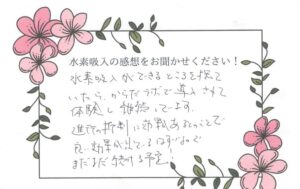 水素吸入の感想をお聞かせください！
水素吸入ができるところを探して
いたら、からだラボで導入されて
体験し維持してます。
進行の抑制に効果あるとのことで
良い効果が出ているはずなので
まだまだ続ける予定！